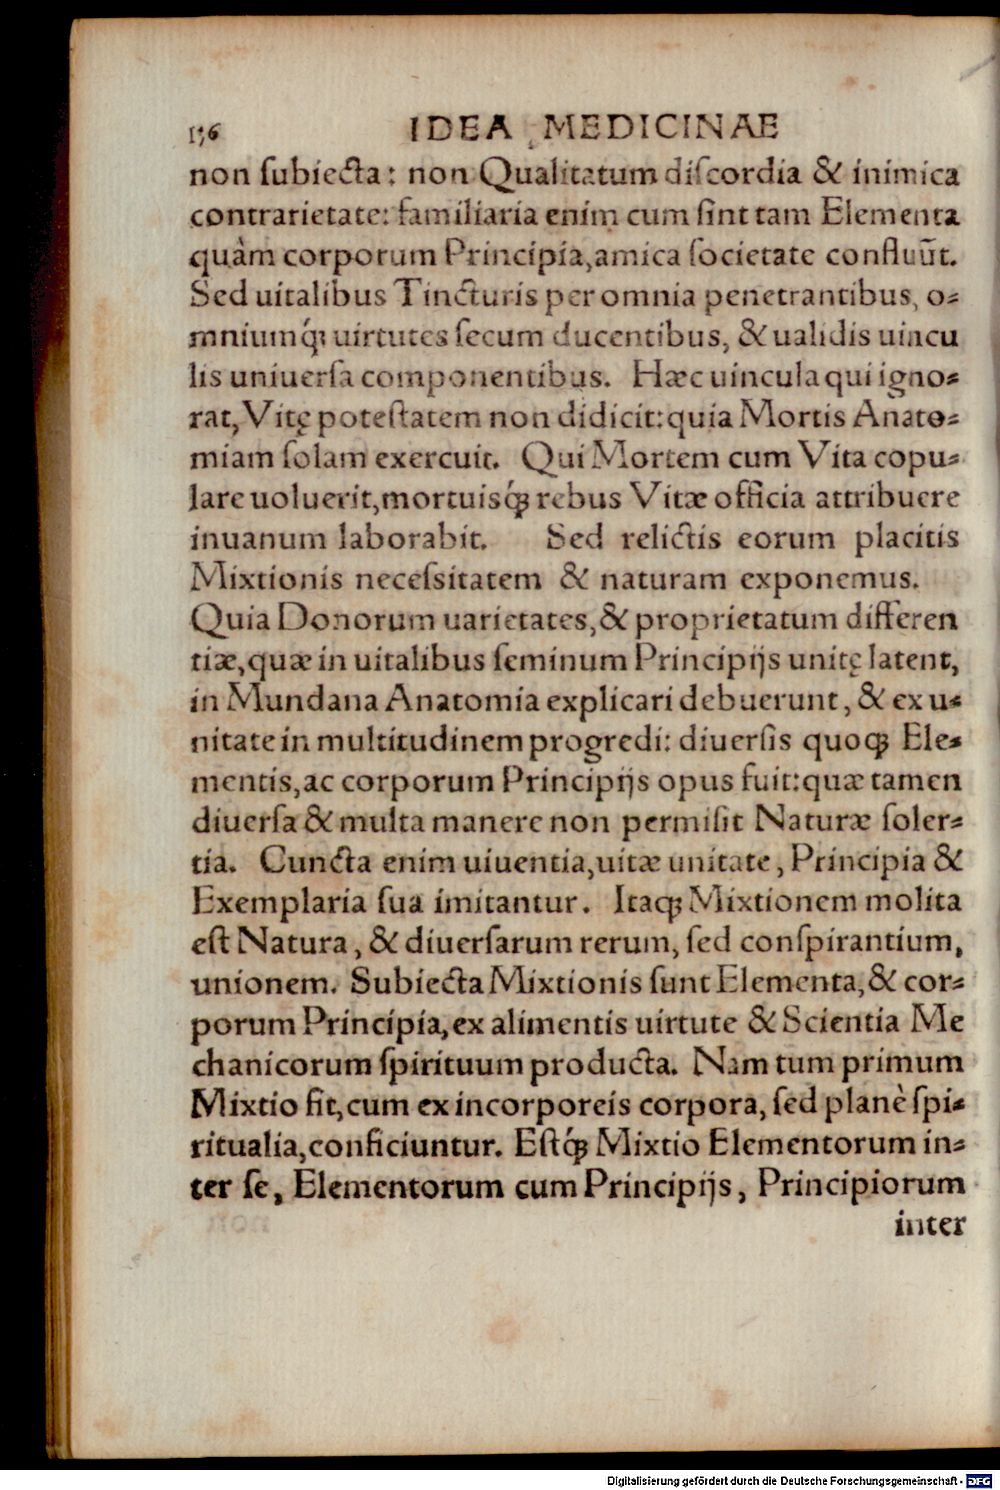 156 IDEA MEDICINAE
non ſubiecta: non Qualitatum diſcordia & inimica
contrarietate: familiaria enim cum ſint tam Elementa
quàm corporum Principia, amica ſocietate confluūt.
Sed uitalibus Tincturis per omnia penetrantibus, o-
mniumq́; uirtutes ſecum ducentibus, & ualidis uincu
lis uniuerſa componentibus. Hæc uincula qui igno-
rat, Vitę poteſtatem non didicit: quia Mortis Anato-
miam ſolam exercuit. Qui Mortem cum Vita copu-
lare uoluerit, mortuisq́; rebus Vitæ officia attribuere
inuanum laborabit. Sed relictis eorum placitis
Mixtionis neceſsitatem & naturam exponemus.
Quia Donorum uarietates, & proprietatum differen
tiæ, quæ in uitalibus ſeminum Principijs unitę latent,
in Mundana Anatomia explicari debuerunt, & ex u-
nitate in multitudinem progredi: diuerſis quoq; Ele-
mentis, ac corporum Principijs opus fuit: quæ tamen
diuerſa & multa manere non permiſit Naturæ ſoler-
tia. Cuncta enim uiuentia, uitæ unitate, Principia &
Exemplaria ſua imitantur. Itaq; Mixtionem molita
eſt Natura, & diuerſarum rerum, ſed conſpirantium,
unionem. Subiecta Mixtionis ſunt Elementa, & cor-
porum Principia, ex alimentis uirtute & Scientia Me
chanicorum ſpirituum producta. Nam tum primum
Mixtio fit, cum ex incorporeis corpora, ſed planè ſpi-
ritualia, conficiuntur. Eſtq́; Mixtio Elementorum in-
ter ſe, Elementorum cum Principijs, Principiorum
inter
Digitalisierung gefördert durch die Deutsche Forschungsgemeinschaft - DFG